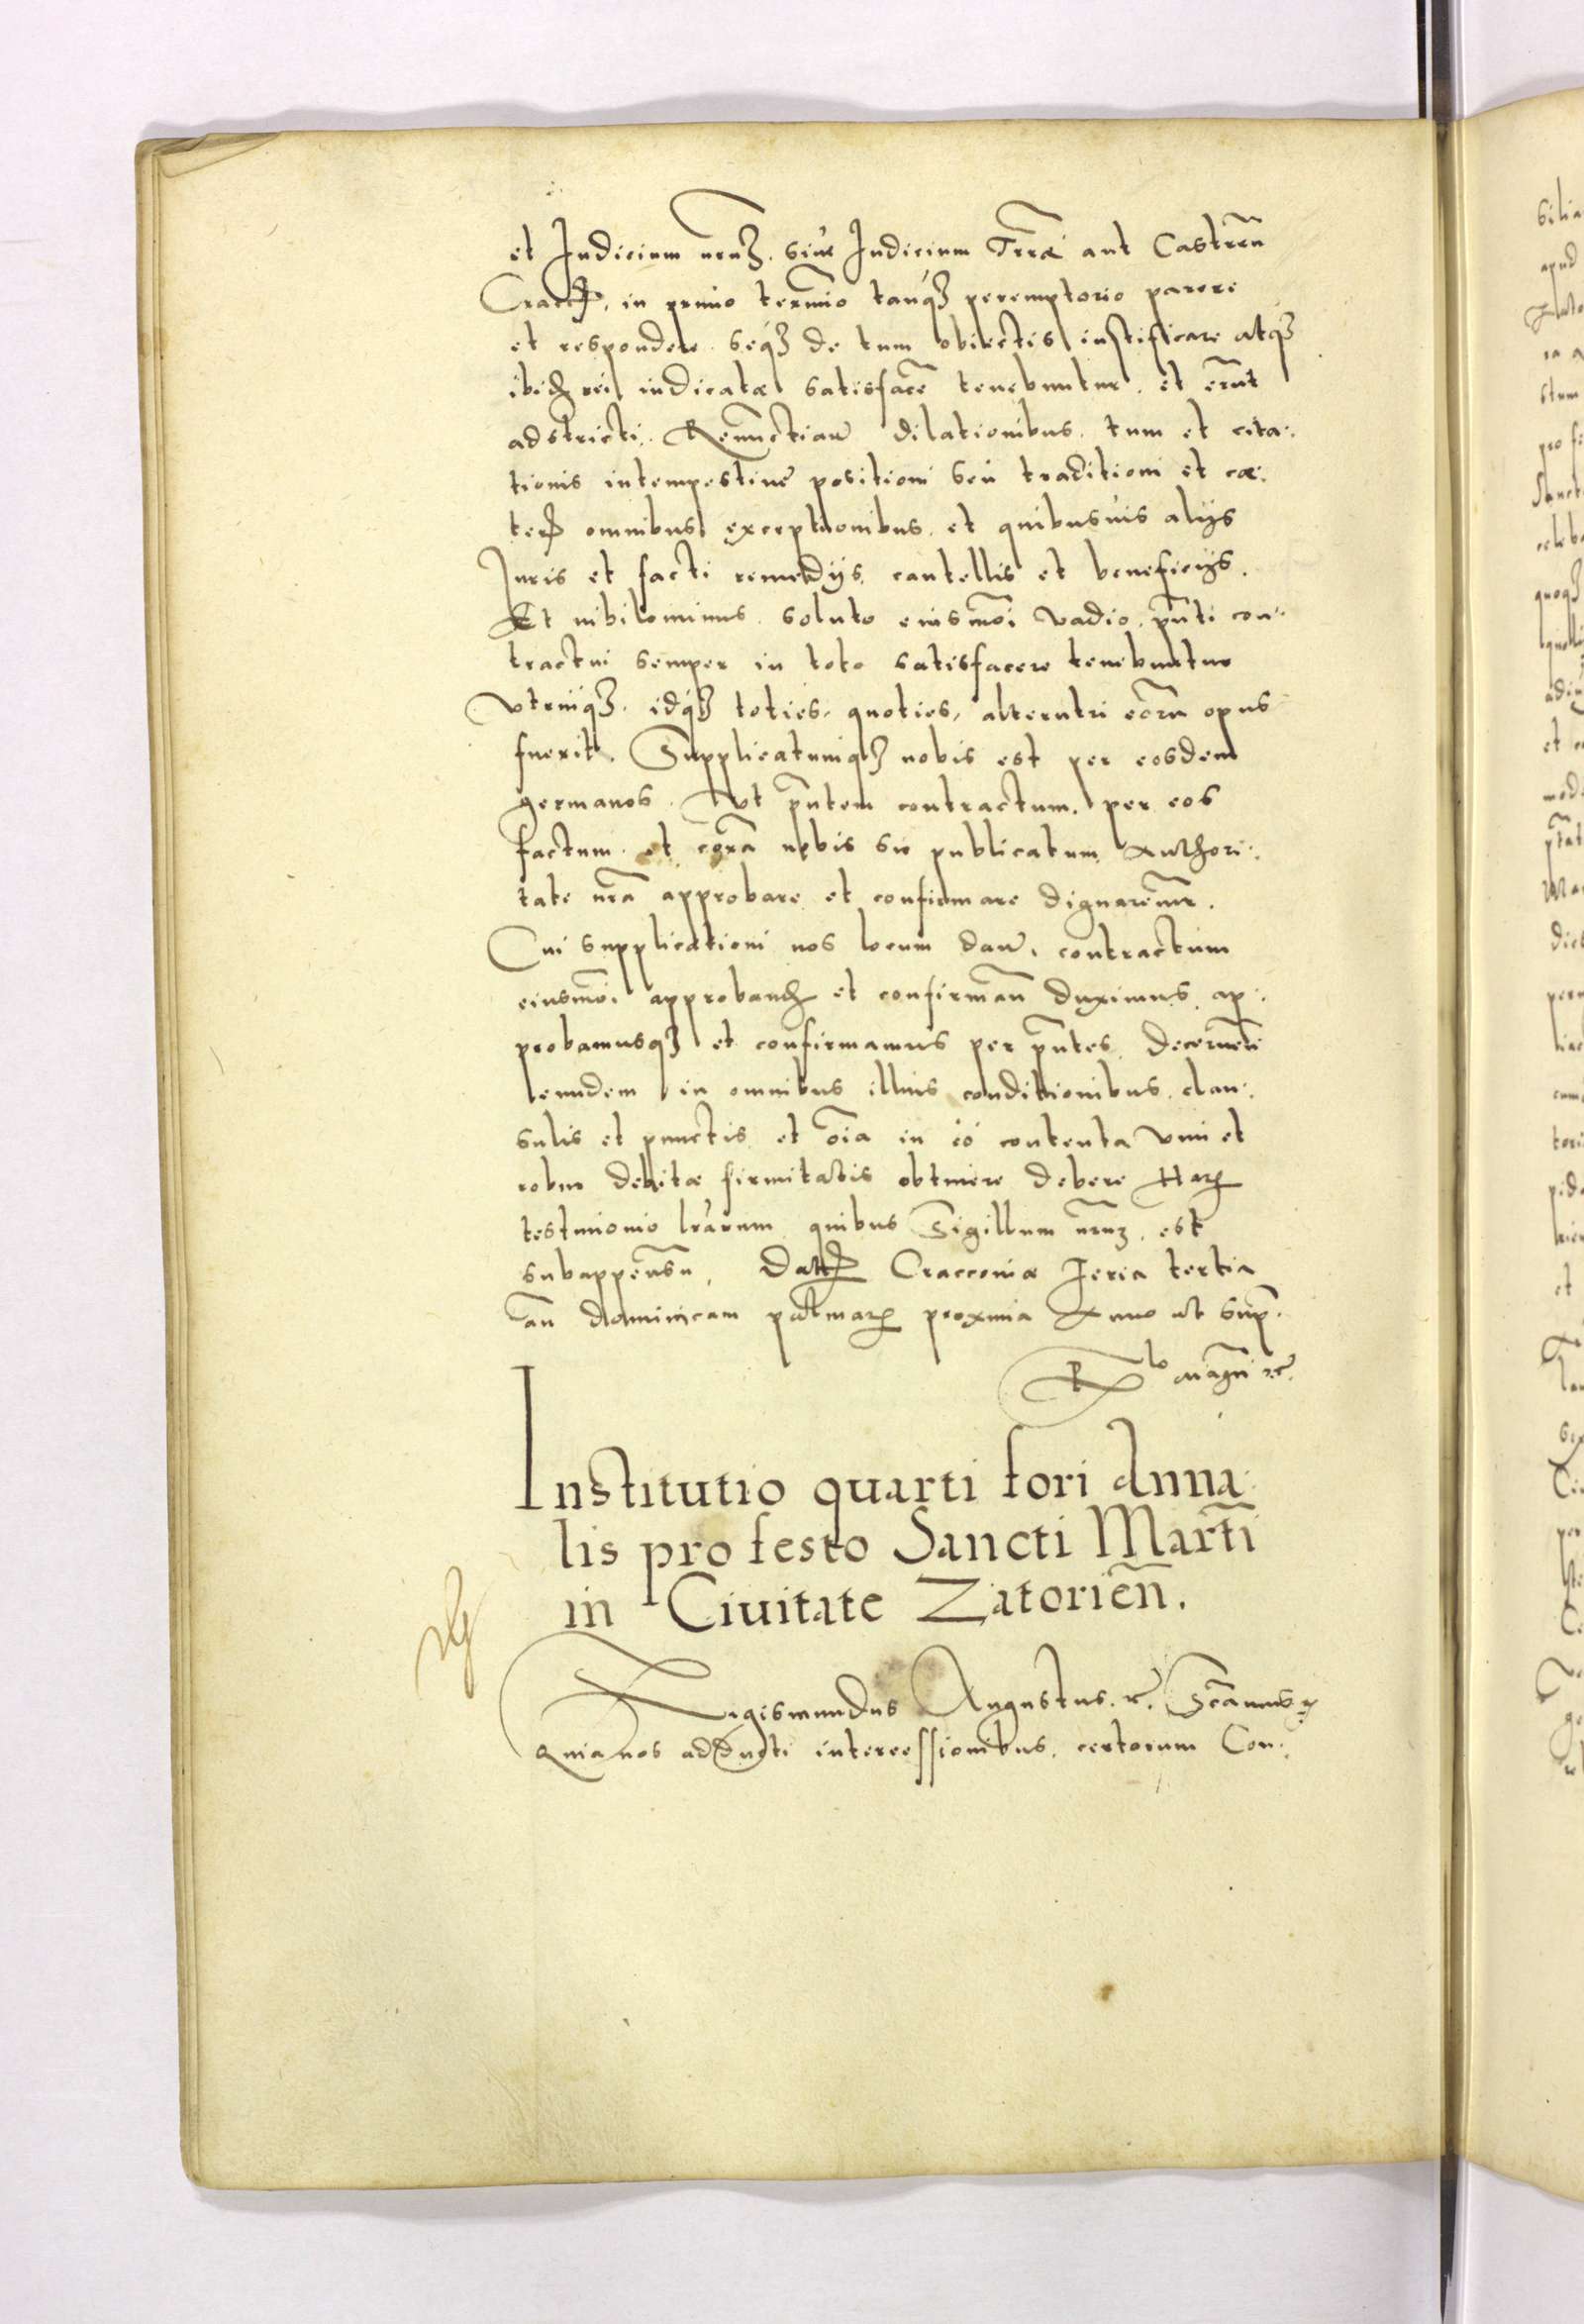 et Iudicium nrūȝ. siue Iudicium Trrāe aut Castreñ
Cracc̄, in primo termio̅ tanqȝ peremptorio parere
et respondere seqȝ de tum obiectis iustificare atqȝ
ibid̄ rei iudicatæ satisface̅ tenebuntur. et eru̅t
adstricti. Renu̅ctiaȓ dilationibus. tum et cita:
tionis intempestiue positioni seu traditioni et cæ:
teȓ omnibus exceptionibus. et quibusuis alijs
Iuris et facti remedijs cautellis et beneficijs.
Et nihilominus. soluto eiusmo̅i vadio. pñti con:
tractui semper in toto satisfacere tenebuntur
vtriqȝ. idqȝ toties, quoties, alterutri eoru̅ opus
fuerit. Supplicatumqȝ nobis est per eosdem
germanos. Vt pñtem contractum. per eos
factum. et cora̅ nobis sic publicatum Authori:
tate nr̅a approbare et confirmare dignaremr̅.
Cui supplicationi nos locum daȓ. contractum
eiusmo̅i approband̄ et confirmañ duximus. ap:
probamusqȝ et confirmamus per pñtes. Decernen̅
eundem in omnibus illius conditionibus. clau:
sulis et punctis et o̅ia in eo contenta vim et
robur debitæ firmitatis obtinere debere Haꝝ
testimonio lr̅arum quibus Sigillum nr̅uȝ. est
subappensu̅. Datt̄ Cracconiæ Feria tertia
an̄ dominicam palmaꝝ proxima Anno vt sup̄.
R lo magñ ꝛc̄.
Institutio quarti fori Anna:
lis pro festo Sancti Marti̅
in Ciuitate Zatorieñ.
Sigismundus Augustus. ꝛc̄. Sca̅mus ꝛc̄
Quia nos adducti intercessionibus. certorum Con: